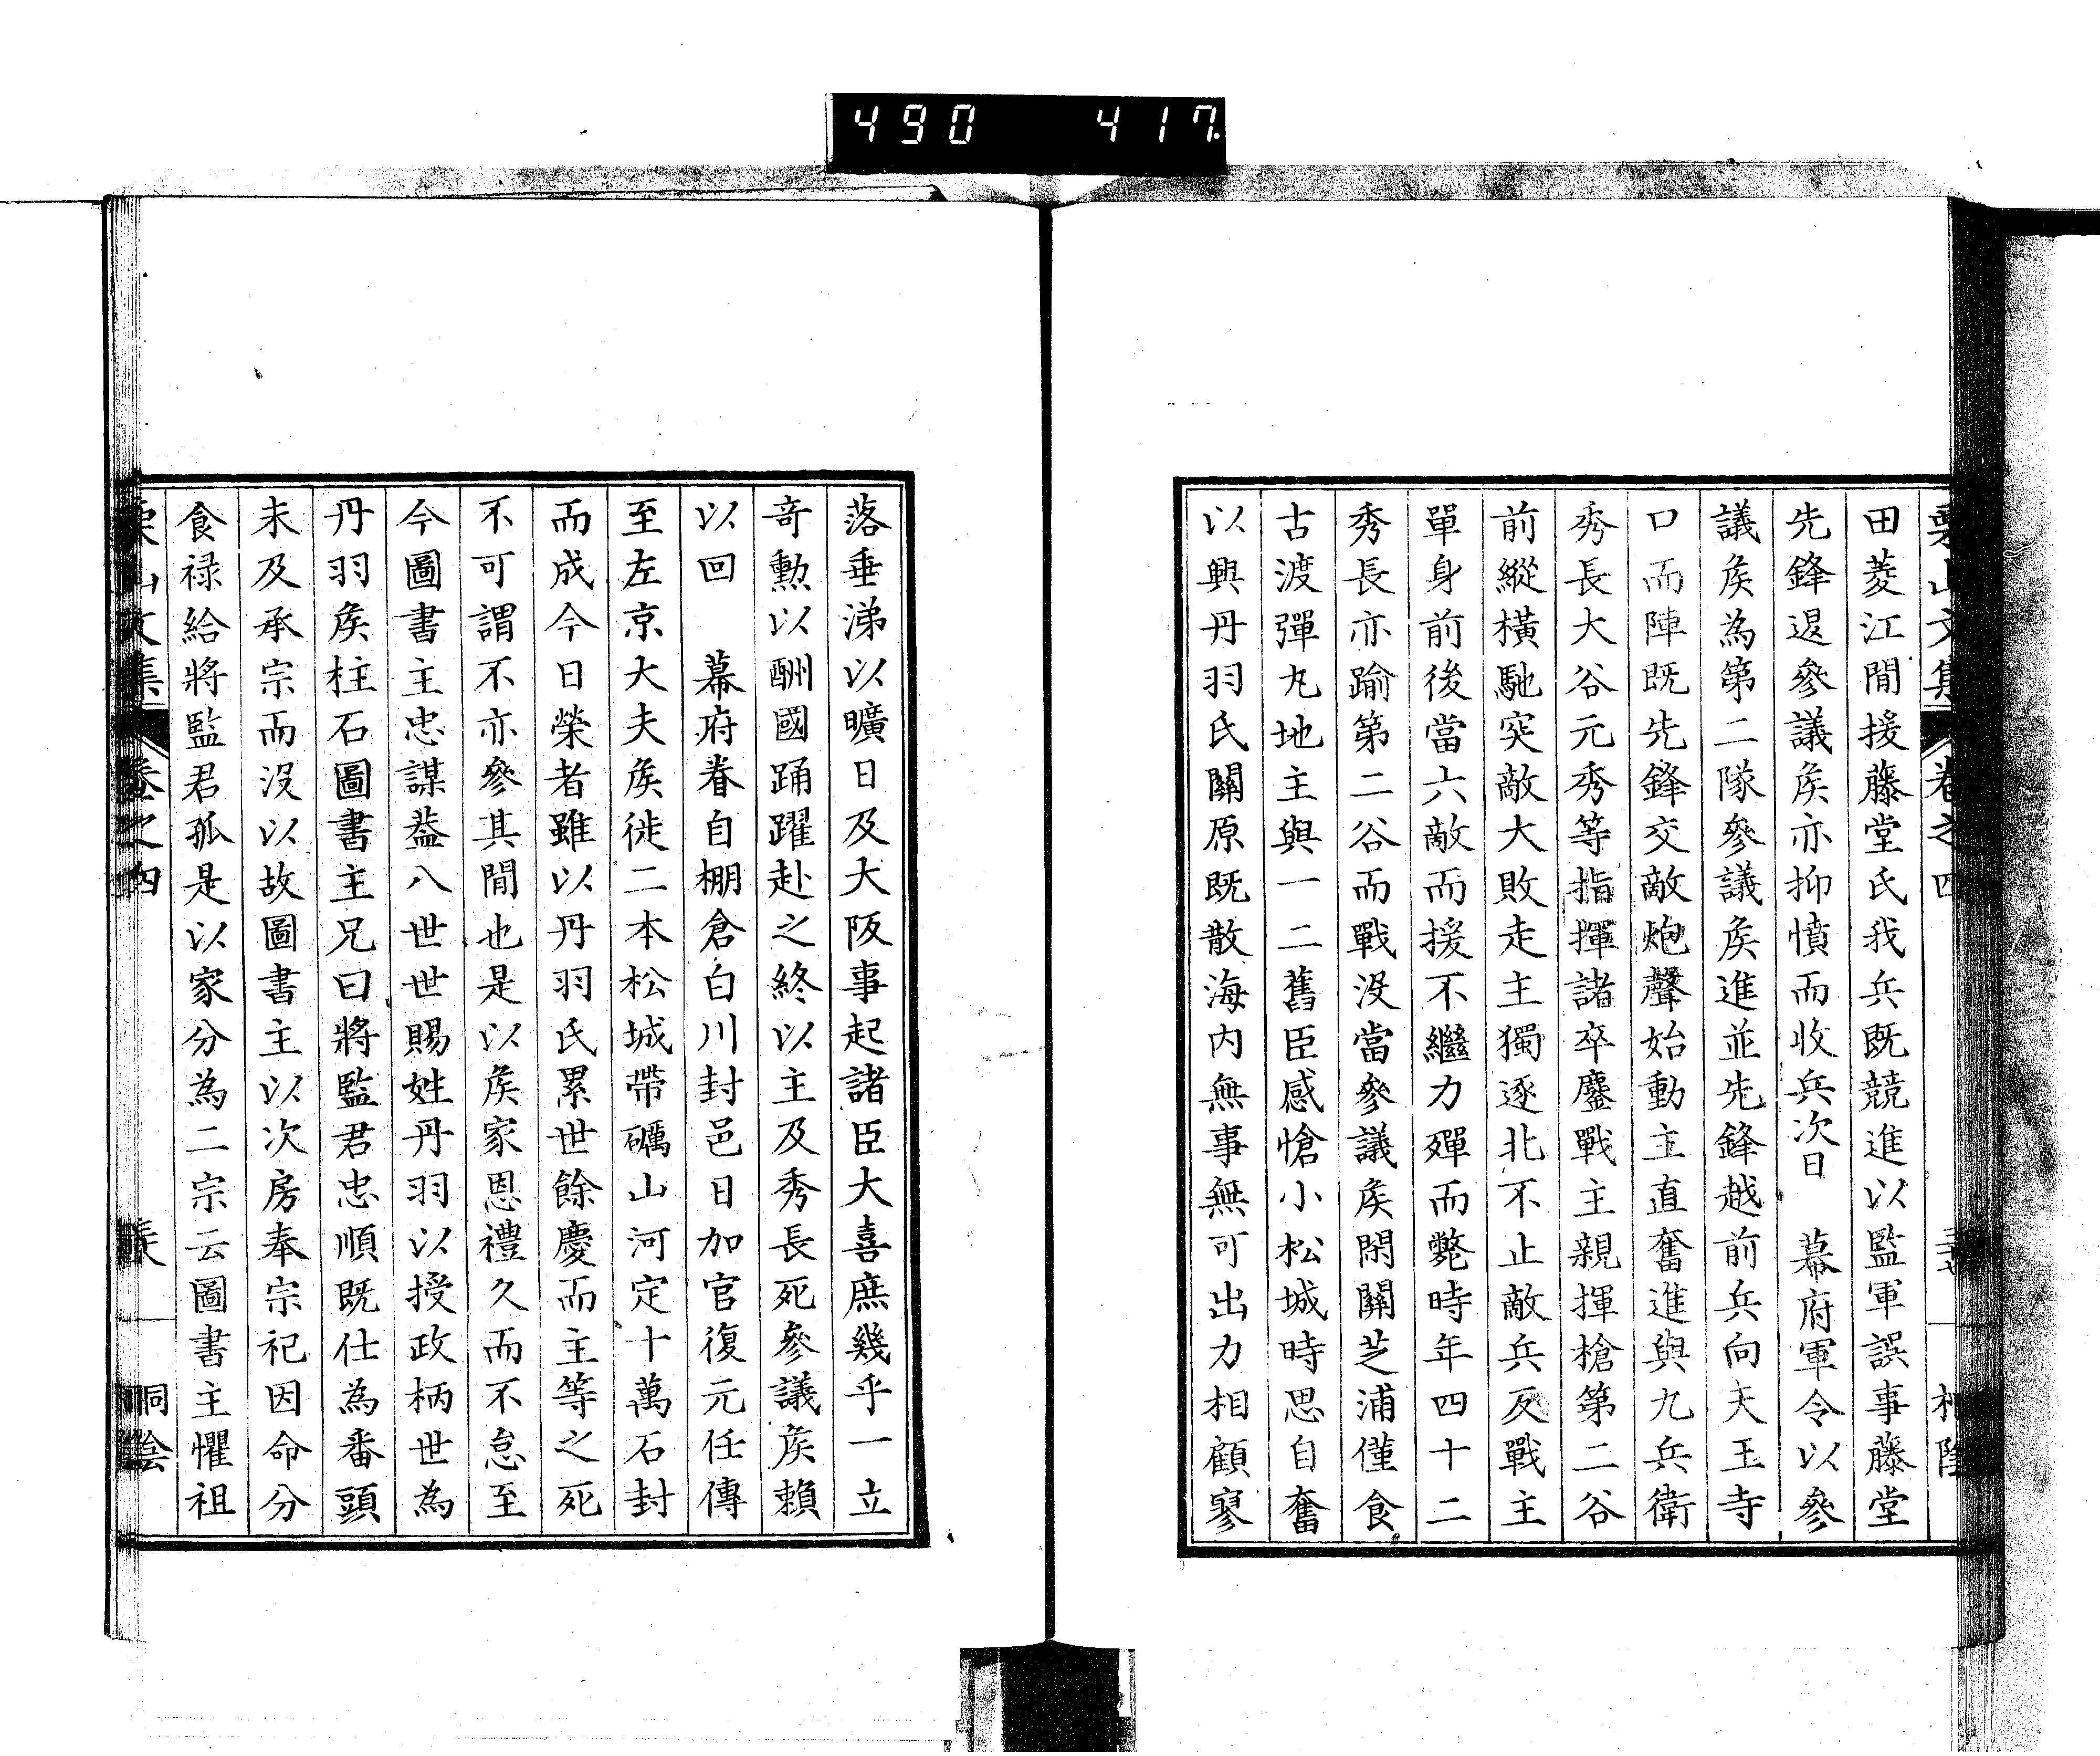 490 417
田菱江間援藤堂氏我兵既競進以監軍誤事藤堂
先鋒退參議矦亦抑憤而收兵次日 幕府軍令以參
議矦為第二隊參議矦進並先鋒越前兵向天王寺
口而陣既先鋒交敵炮聲始動主直奮進與九兵衛
秀長大谷元秀等指揮諸卒鏖戰主親揮槍第二谷
前縱橫馳突敵大敗走主獨逐北不止敵兵反戰主
單身前後當六敵而援不繼力殫而斃時年四十二
秀長亦踰第二谷而戰沒當參議矦閉關芝浦僅食
古渡彈丸地主與一二舊臣感愴小松城時思自奮
以興丹羽氏關原既散海内無事無可出力相顧寥
落垂涕以曠日及大阪事起諸臣大喜庶幾乎一立
奇勲以酬國踊躍赴之終以主及秀長死參議矦賴
以回 幕府眷自棚倉白川封邑日加官復元任傳
至左京大夫矦徙二本松城帶礪山河定十萬石封
而成今日榮者雖以丹羽氏累世餘慶而主等之死
不可謂不亦參其間也是以矦家恩禮久而不怠至
今圖書主忠謀葢八世世賜姓丹羽以授政柄世為
丹羽矦柱石圖書主兄曰將監君忠順既仕為番頭
未及承宗而沒以故圖書主以次房奉宗祀因命分
食禄給將監君孤是以家分為二宗云圖書主懼祖
文集 卷之四